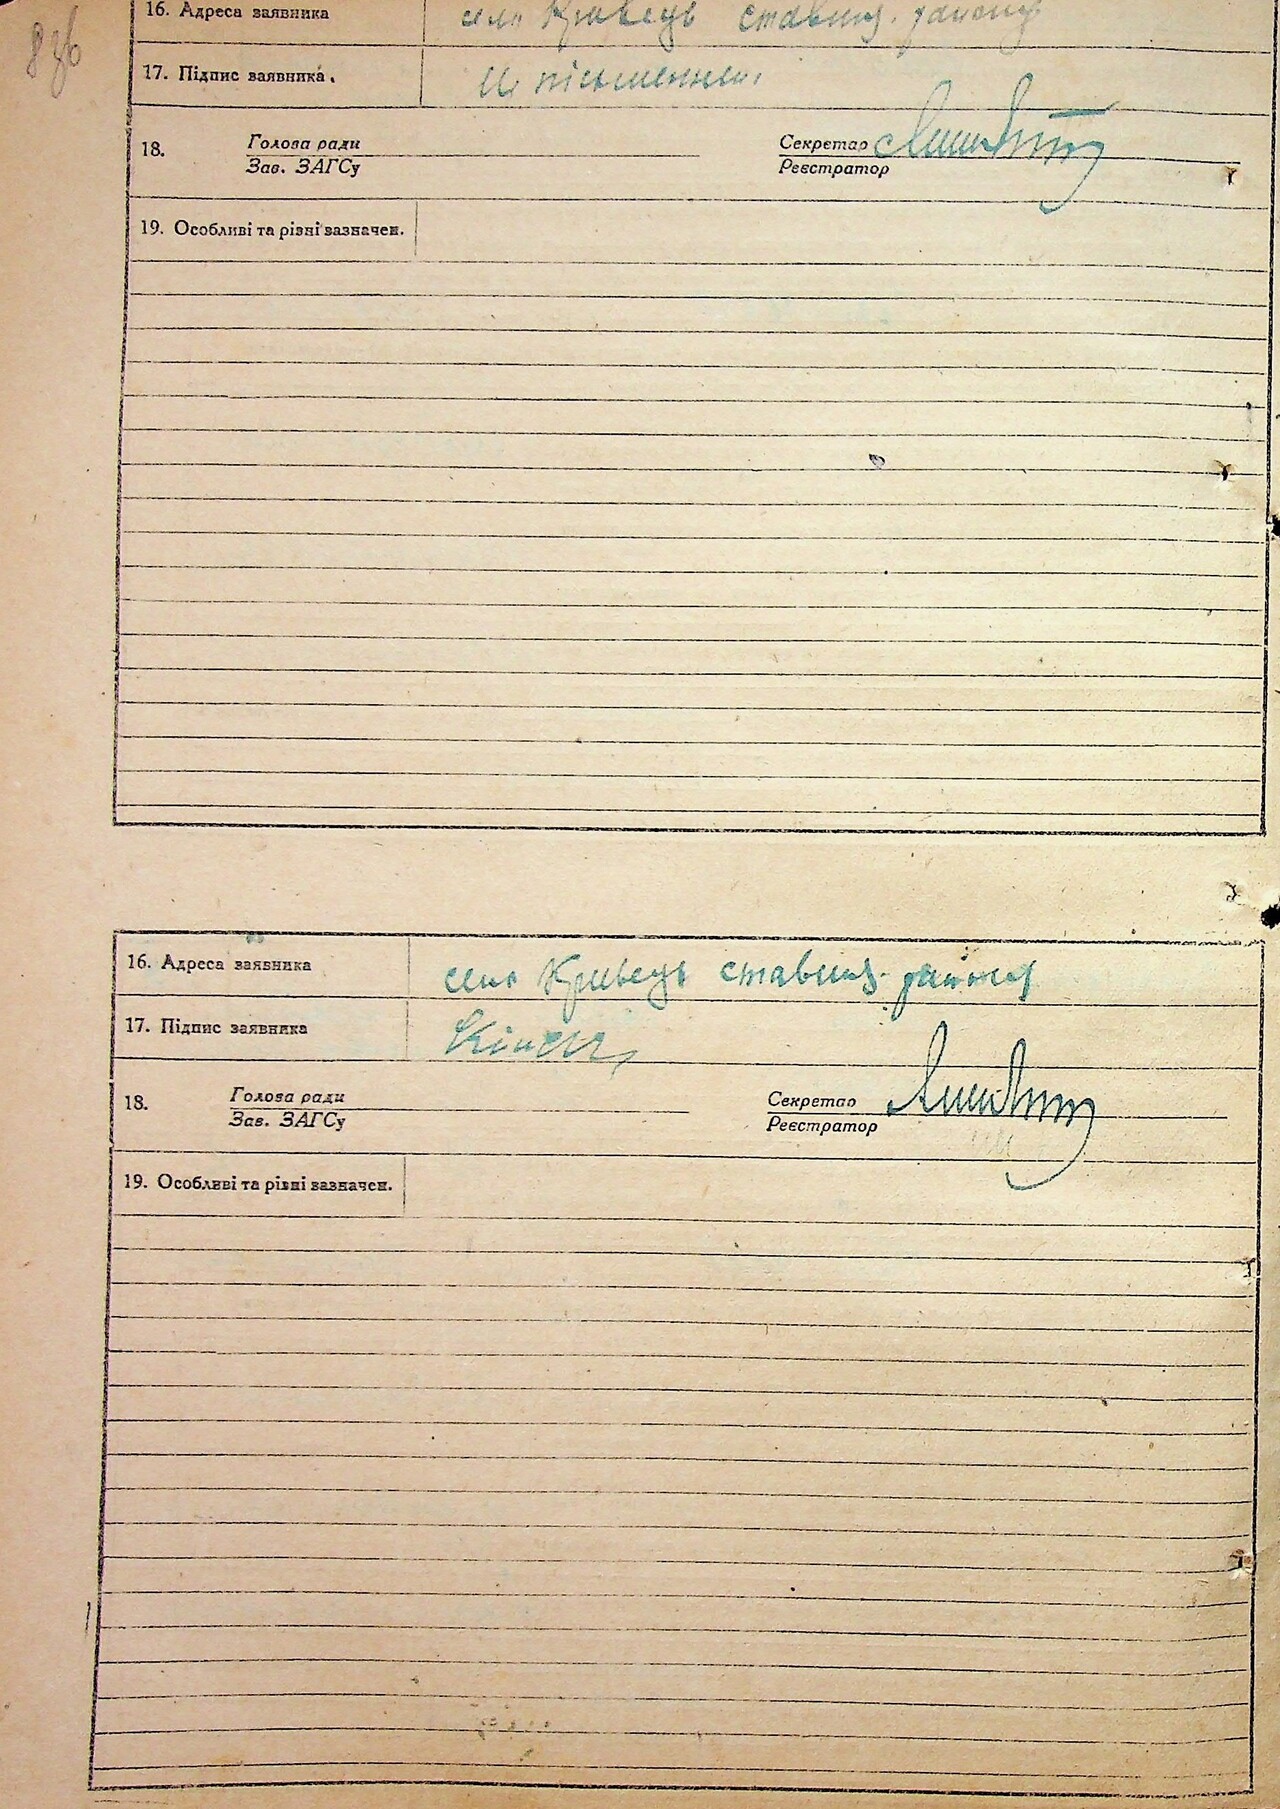 16. Адреса заявника село Кривець ставищ. району
17. Підпис заявника.
18. Голова ради Секретар
Зав. ЗАГСу Реєстратор
19. Особливі та різні зазначен.
16. Адреса заявника село Кривець ставищ. району
17. Підпис заявника
18. Голова ради Секретар
Зав. ЗАГСу Реєстратор
19. Особливі та різні зазначен.